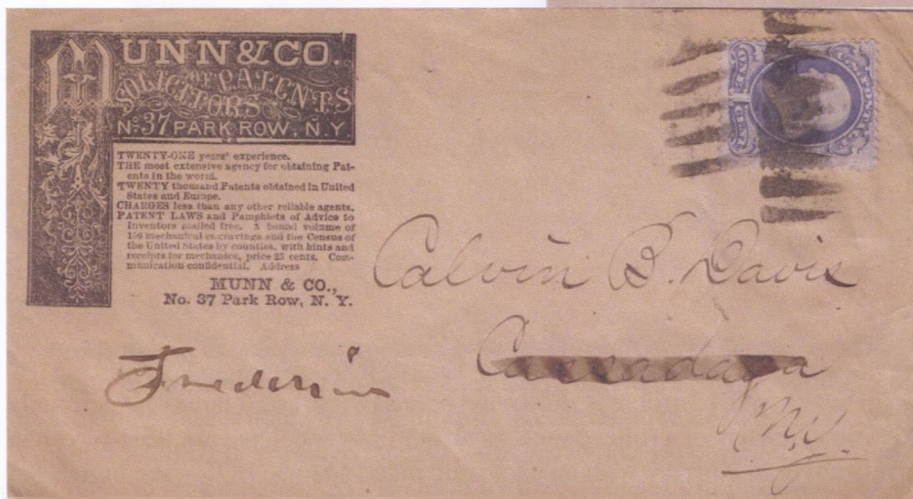 MUNN & CO.
SOLICITORS OF PATENTS
No. 37 PARK ROW, N.Y.
TWENTY-ONE years' experience.
THE most extensive agency for obtaining Pat-
ents in the world.
TWENTY thousand Patents obtained in United
States and Europe.
CHARGES less than any other reliable agents.
PATENT LAWS and Pamphlets of Advice to
Inventors mailed free. A bound volume of
150 mechanical engravings and the Census of
the United States by counties, with hints and
receipts for mechanics, price 25 cents. Com-
munication confidential. Address
MUNN & CO.,
No. 37 Park Row, N. Y.
Calvin B. Davis
Cassadaga
N.Y.
ONE CENT